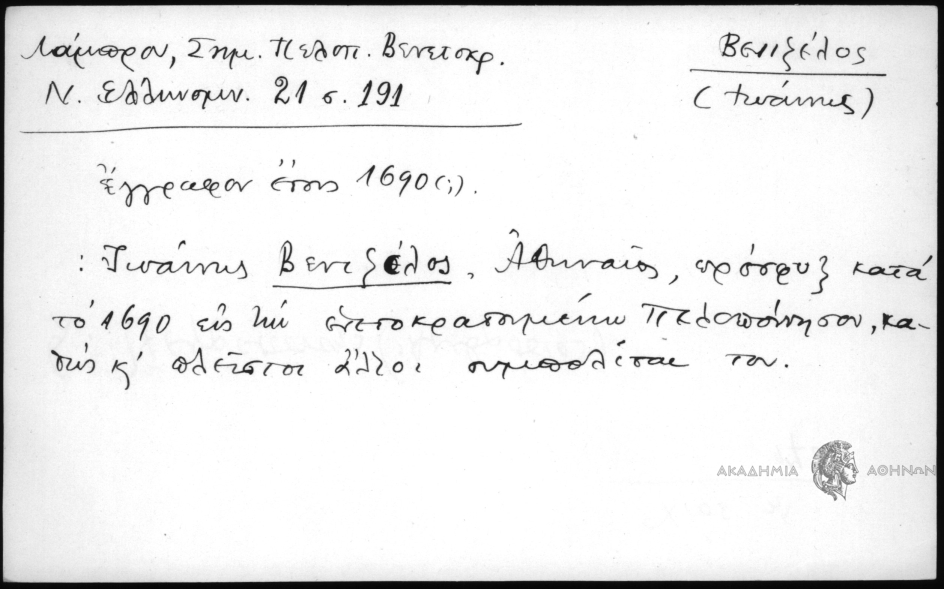 Λάμπρου, Σημ. Πελοπ. Βενετοκρ.
Ν. Ελληνομν. 21 σ. 191
Βενιζέλος
(Ιωάννης)
Έγγραφον έτους 1690 (;).
: Ιωάννης Βενιζέλος, Αθηναίος, πρόσφυξ κατά
το 1690 εις την ενετοκρατουμένην Πελοπόννησον, κα-
θώς κ' πλείστοι άλλοι συμπολίται του.
ΑΚΑΔΗΜΙΑ ΑΘΗΝΩΝ